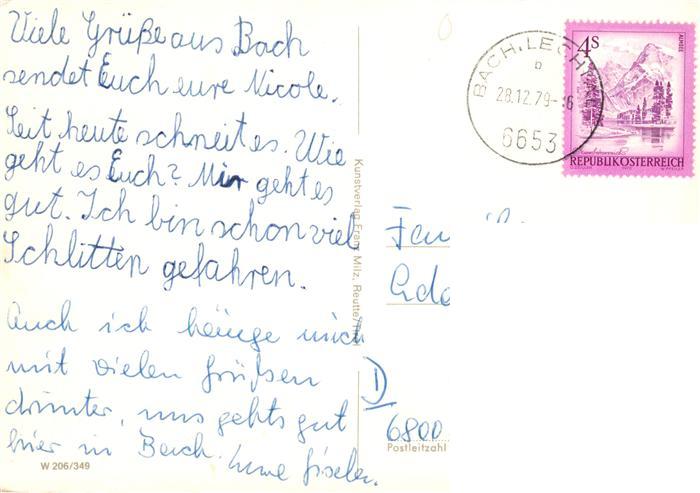 Viele Grüße aus Bach
sendet Euch eure Nicole.
Seit heute schneit es. Wie
geht es Euch? Mir geht es
gut. Ich bin schon viel
Schlitten gefahren.
Auch ich hänge mich
mit vielen Grüßen
drunter, uns gehts gut
hier in Bach. Eure Gisela.
W 206/349
Kunstverlag Franz Milz, Reutte/Tirol
BACH, LECHTAL
b
28.12.79-16
6653
4S
ALMSEE
REPUBLIK ÖSTERREICH
Fam
D
6800
Postleitzahl